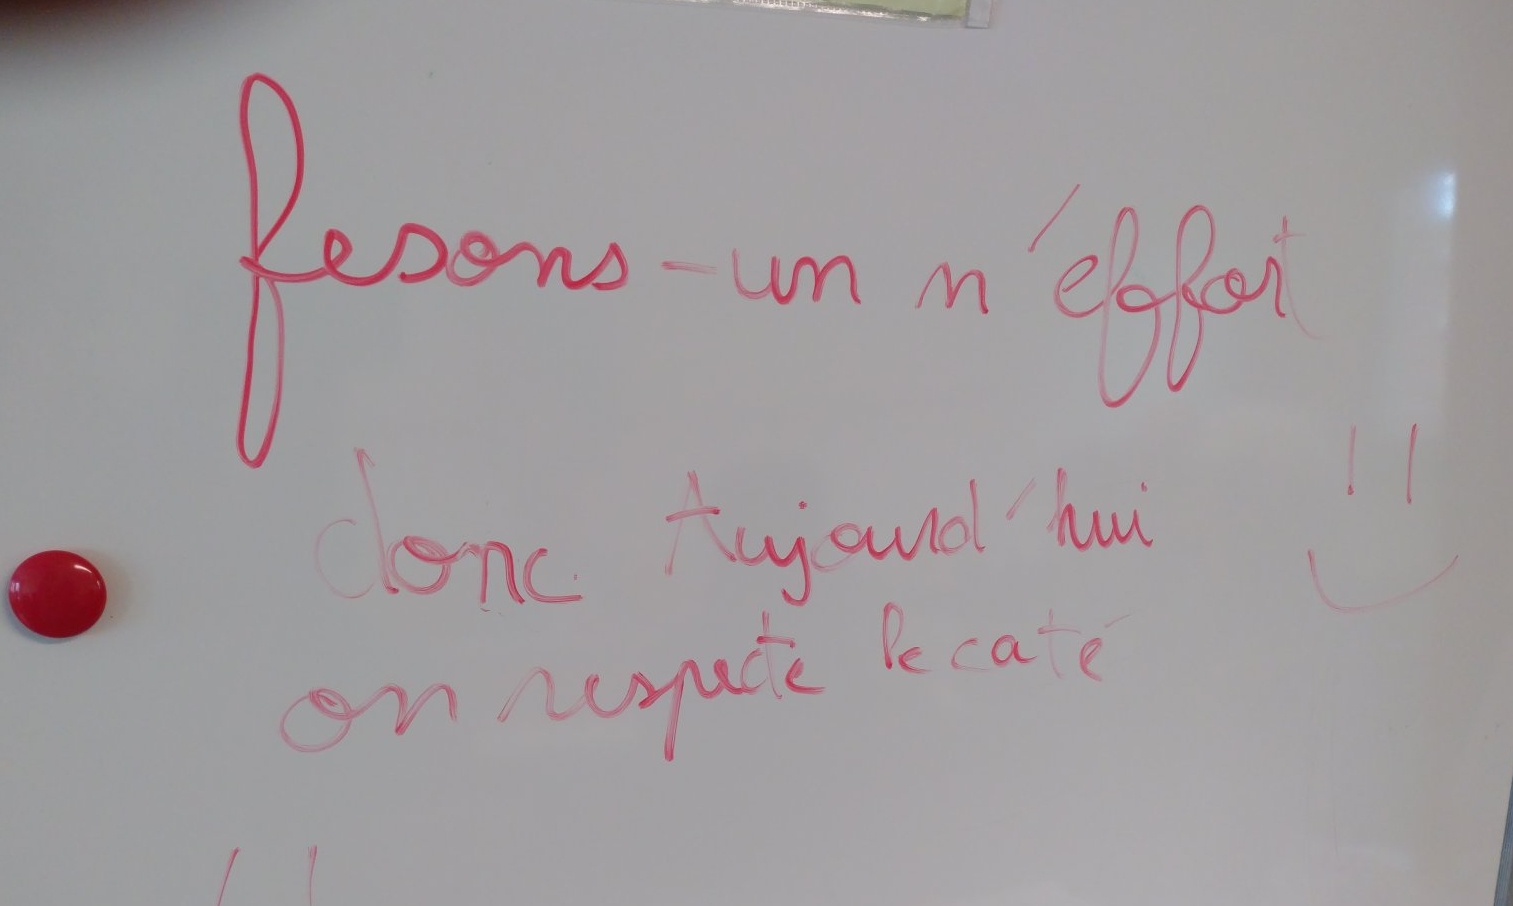 fesons-un n'éffort
donc Aujourd'hui
on respecte le caté